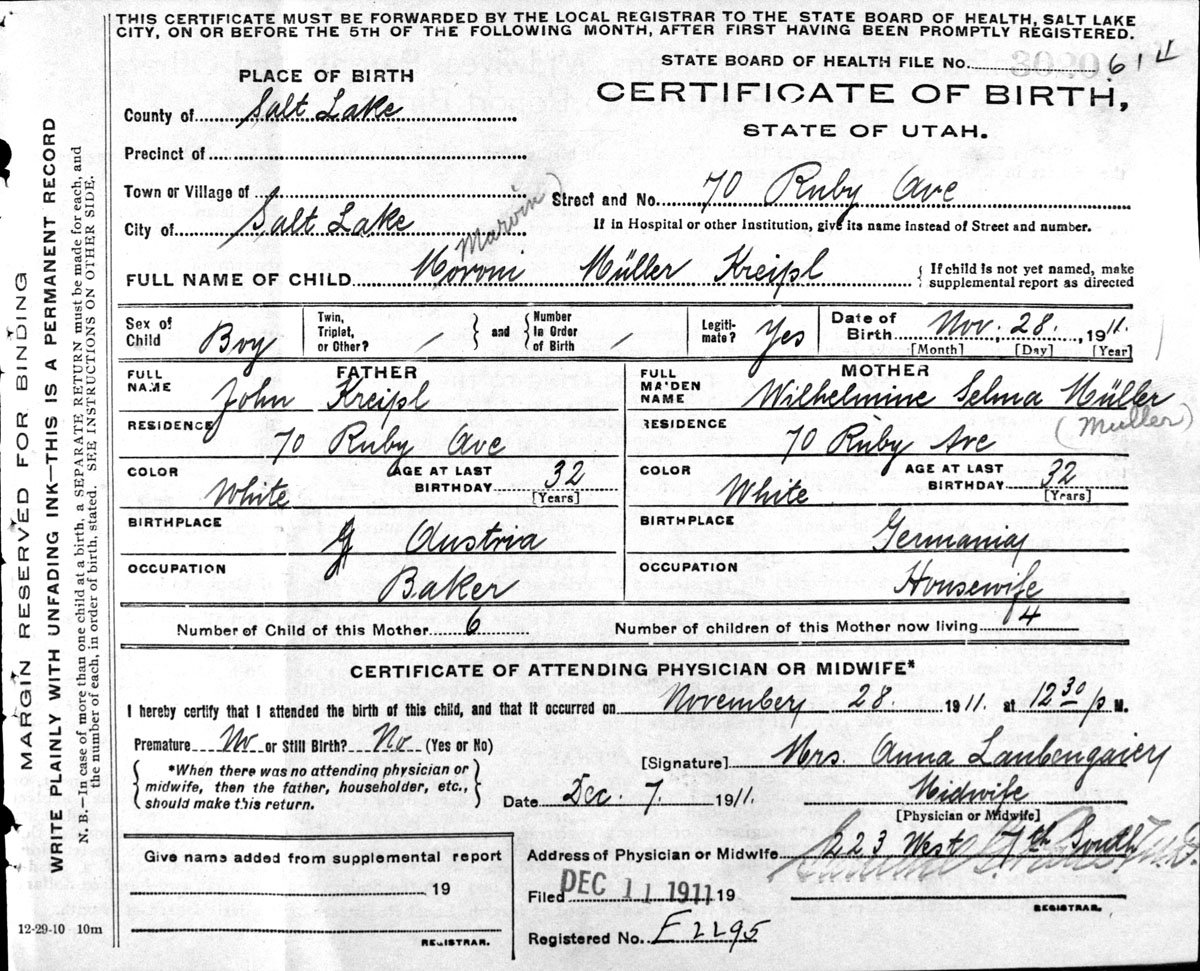 THIS CERTIFICATE MUST BE FORWARDED BY THE LOCAL REGISTRAR TO THE STATE BOARD OF HEALTH, SALT LAKE
CITY, ON OR BEFORE THE 5TH OF THE FOLLOWING MONTH, AFTER FIRST HAVING BEEN PROMPTLY REGISTERED.
STATE BOARD OF HEALTH FILE No. 61
PLACE OF BIRTH
CERTIFICATE OF BIRTH,
STATE OF UTAH.
County of Salt Lake
Precinct of
Town or Village of
Street and No. 70 Ruby Ave
City of Salt Lake
If in Hospital or other Institution, give its name instead of Street and number.
Marvin
FULL NAME OF CHILD Moroni Müller Kreipl
If child is not yet named, make
supplemental report as directed
Sex of Child Boy
Twin, Triplet, or Other? / and Number in Order of Birth /
Legiti-mate? Yes
Date of Birth Nov. 28., 1911.
[Month] [Day] [Year]
FATHER
FULL NAME John Kreipl
RESIDENCE 70 Ruby Ave
COLOR White
AGE AT LAST BIRTHDAY 32 [Years]
BIRTHPLACE Austria
OCCUPATION Baker
MOTHER
FULL MAIDEN NAME Wilhelmine Selma Müller
(Muller)
RESIDENCE 70 Ruby Ave
COLOR White
AGE AT LAST BIRTHDAY 32 [Years]
BIRTHPLACE Germania
OCCUPATION Housewife
Number of Child of this Mother 6
Number of children of this Mother now living 4
CERTIFICATE OF ATTENDING PHYSICIAN OR MIDWIFE*
I hereby certify that I attended the birth of this child, and that it occurred on November 28. 1911. at 12 30 p M.
Premature No or Still Birth? No (Yes or No)
*When there was no attending physician or
midwife, then the father, householder, etc.,
should make this return.
[Signature] Mrs. Anna Laubengaier
Date Dec. 7. 1911.
Midwife
[Physician or Midwife]
Give name added from supplemental report
19
REGISTRAR.
Address of Physician or Midwife 223 West 7th South
Filed DEC 11 1911 19
REGISTRAR.
Registered No. E2295
12-29-10 10m
MARGIN RESERVED FOR BINDING
WRITE PLAINLY WITH UNFADING INK—THIS IS A PERMANENT RECORD
N. B.—In case of more than one child at a birth, a SEPARATE RETURN must be made for each, and
the number of each, in order of birth, stated. SEE INSTRUCTIONS ON OTHER SIDE.